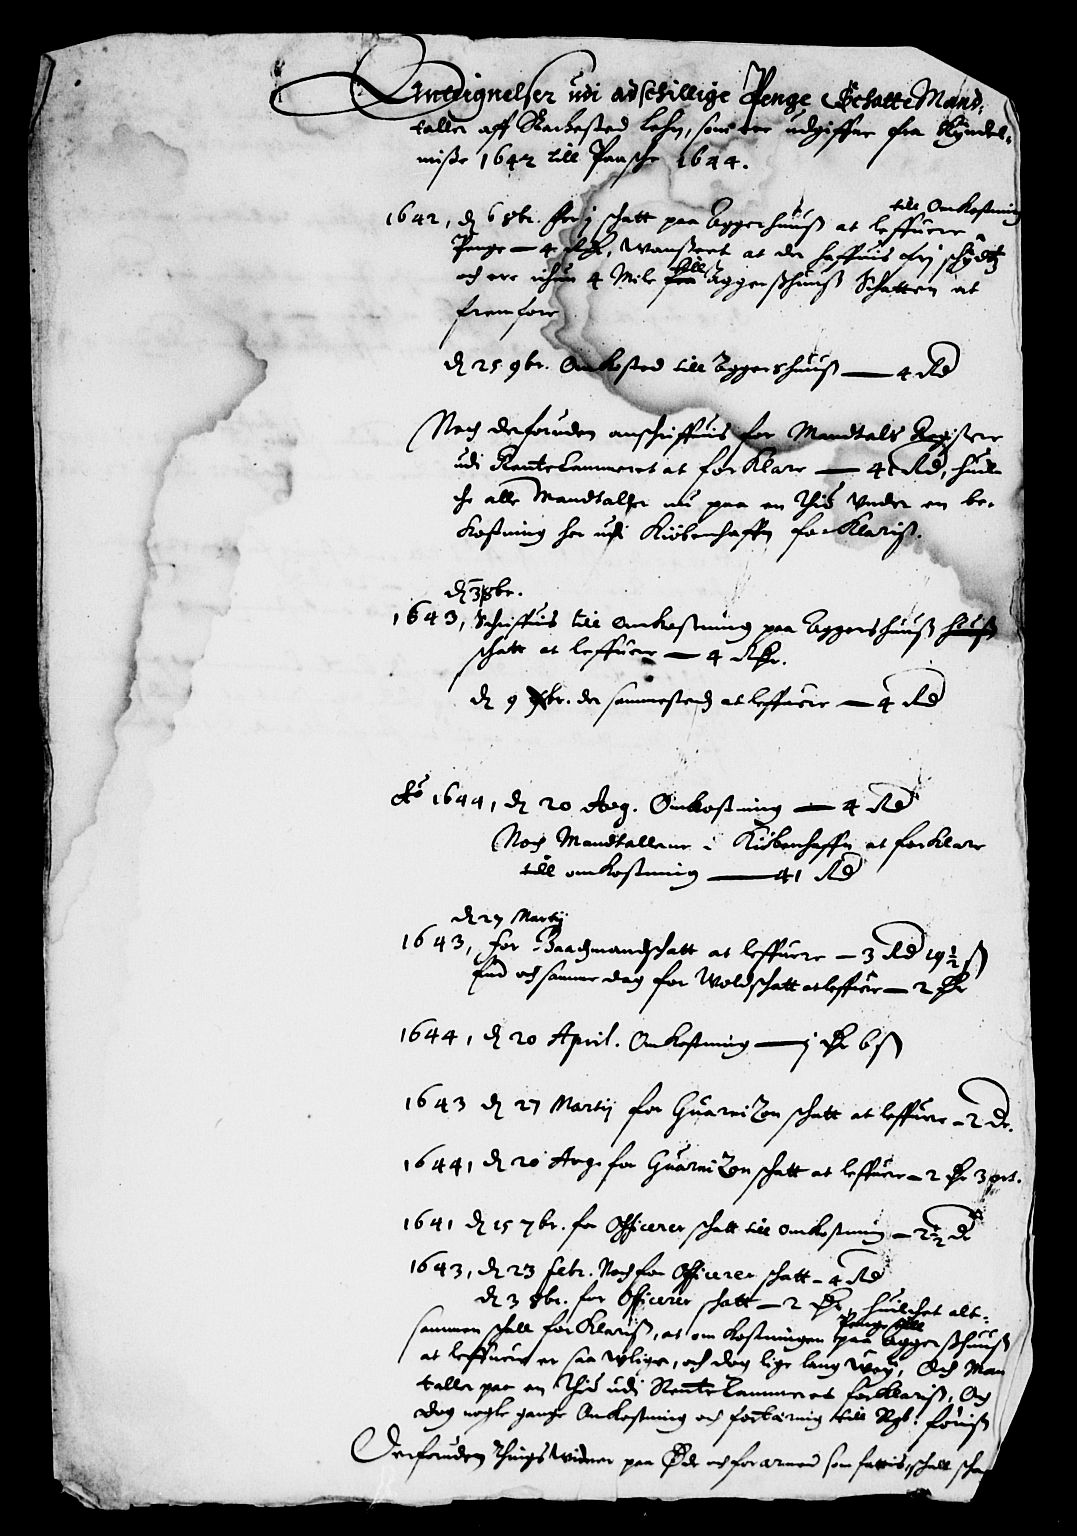 Antegnelser udi adschillige Penge Schatte Mand-
taller aff Stachested Lehn, som ere udgiffne fra Kyndel-
misse 1642 till Paasche 1644.
1642, d 6 8br. for j schatt paa Aggershuus at leffuere till Omkostning
Penge — 4 Rdr, Wanseet at de haffuis frj schydtz
och ere ichun 4 Mile till Aggershuus Schatten at
fremføre
d 25 9br. Omkosted till Aggershuus — 4 Rd
Noch derforuden anschriffuis for Mandtals Register
udi Rentekammeret at forklare — 4 Rd, huil-
che alle Mandtaller nu paa en thid under en be-
kostning her udi Kiøbenhaffn forklaris.
d 3 8br.
1643, Schriffuis till Omkostning paa Aggershuus huus
schatt at leffuere — 4 Rdr.
d 9 br. der sammesteds at leffuere — 4 Rd
Ao 1644, d 20 Aug. Omkostning — 4 Rd
Noch Mandtallene i Kiøbenhaffn at forklare
till omkostning — 41 Rd
d 27 Martij
1643, for Baadzmandschatt at leffuere — 3 Rd 19½ ß
End och samme dag for Woldschatt at leffuere — 2 Dr
1644, d 20 April. Omkostning — j Dr 6 ß
1643 d 27 Martij for Guarnizon schatt at leffuere — 2 Dr.
1644, d 20 Aug. for Guarnizon schatt at leffuere — 2 Dr 3 ort.
1641 d 15 7br. for Officerer schatt till Omkostning — 2½ Dr
1643, d 23 Febr. Noch for Officerer schatt — 4 Rd
d 3 8br. for Officerer schatt — 2 Dr, huilchet alt-
sammen schall forklaris, at omkostningen paa Penge till Aggershuus
at leffuere er saa ulige, och dog lige lang wey, Och Man
taller paa en thid udi Rentekammeret forklaris, Och
dog nogle gange Omkostning och fortæring till Rgb: føris
Derforuden thingswidner paa Øde och forarmed som fattis, schall scha